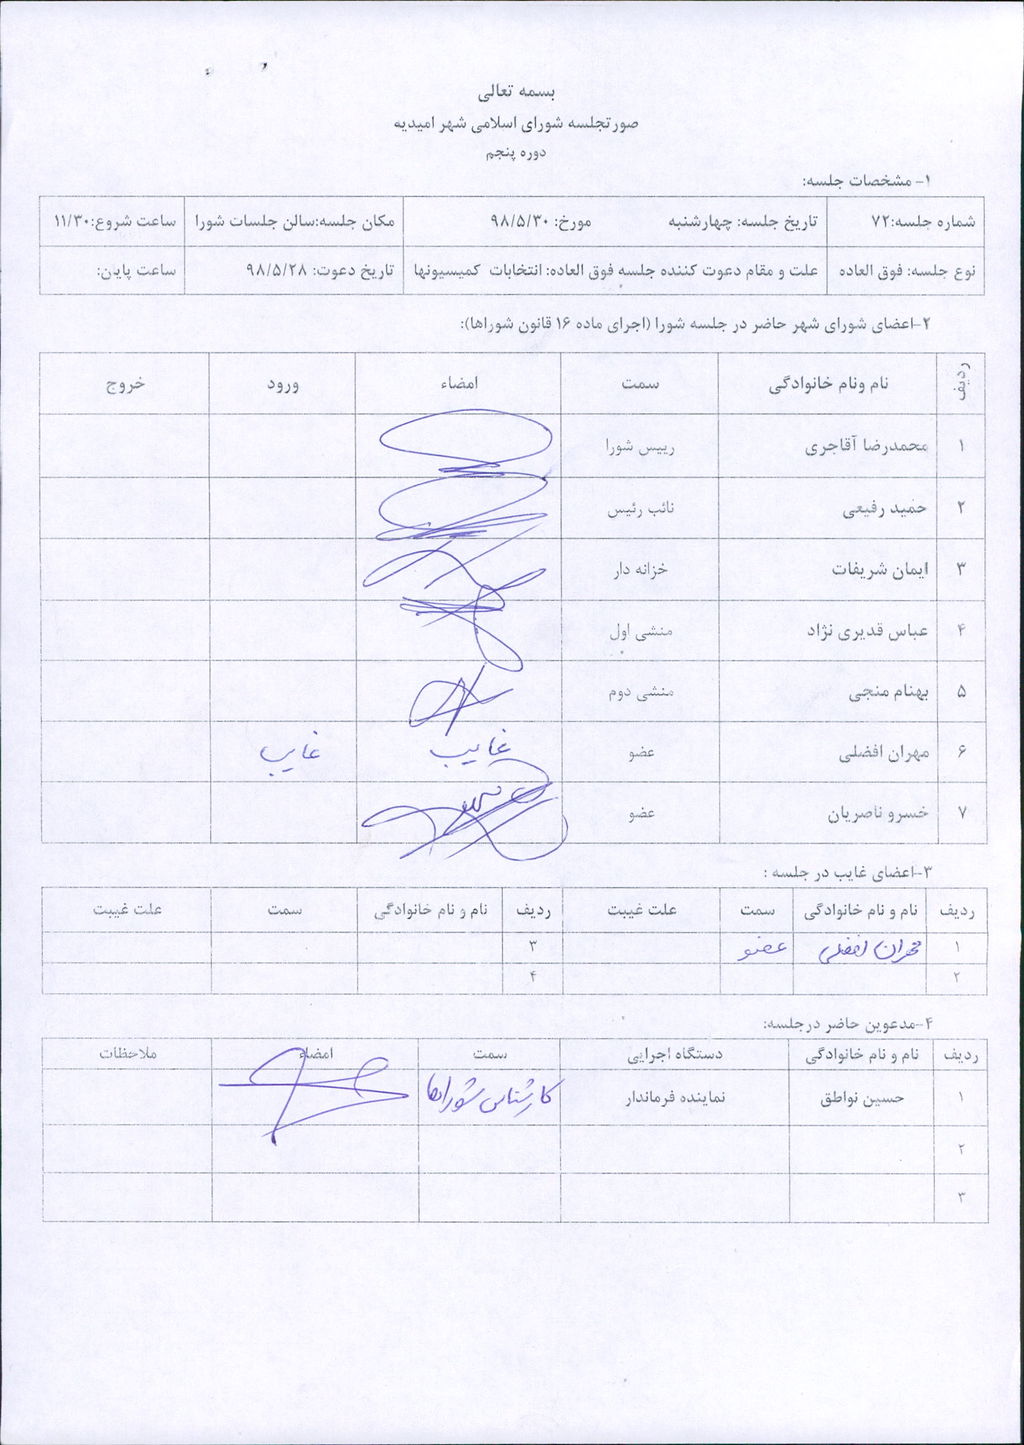 بسمه تعالی
صورتجلسه شورای اسلامی شهر امیدیه
دوره پنجم
۱- مشخصات جلسه:
شماره جلسه:۷۲ تاریخ جلسه: چهارشنبه مورخ: ۹۸/۵/۳۰ مکان جلسه:سالن جلسات شورا ساعت شروع:۱۱/۳۰
نوع جلسه: فوق العاده علت و مقام دعوت کننده جلسه فوق العاده: انتخابات کمیسیونها تاریخ دعوت: ۹۸/۵/۲۸ ساعت پایان:
۲-اعضای شورای شهر حاضر در جلسه شورا (اجرای ماده ۱۶ قانون شوراها):
ردیف نام ونام خانوادگی سمت امضاء ورود خروج
۱ محمدرضا آقاجری رییس شورا
۲ حمید رفیعی نائب رئیس
۳ ایمان شریفات خزانه دار
۴ عباس قدیری نژاد منشی اول
۵ بهنام منجی منشی دوم
۶ مهران افضلی عضو غایب غایب
۷ خسرو ناصریان عضو
۳-اعضای غایب در جلسه :
ردیف نام و نام خانوادگی سمت علت غیبت ردیف نام و نام خانوادگی سمت علت غیبت
۱ مهران افضلی عضو ۳
۲ ۴
۴-مدعوین حاضر درجلسه:
ردیف نام و نام خانوادگی دستگاه اجرایی سمت امضاء ملاحظات
۱ حسین نواطق نماینده فرماندار کارشناس شوراها
۲
۳